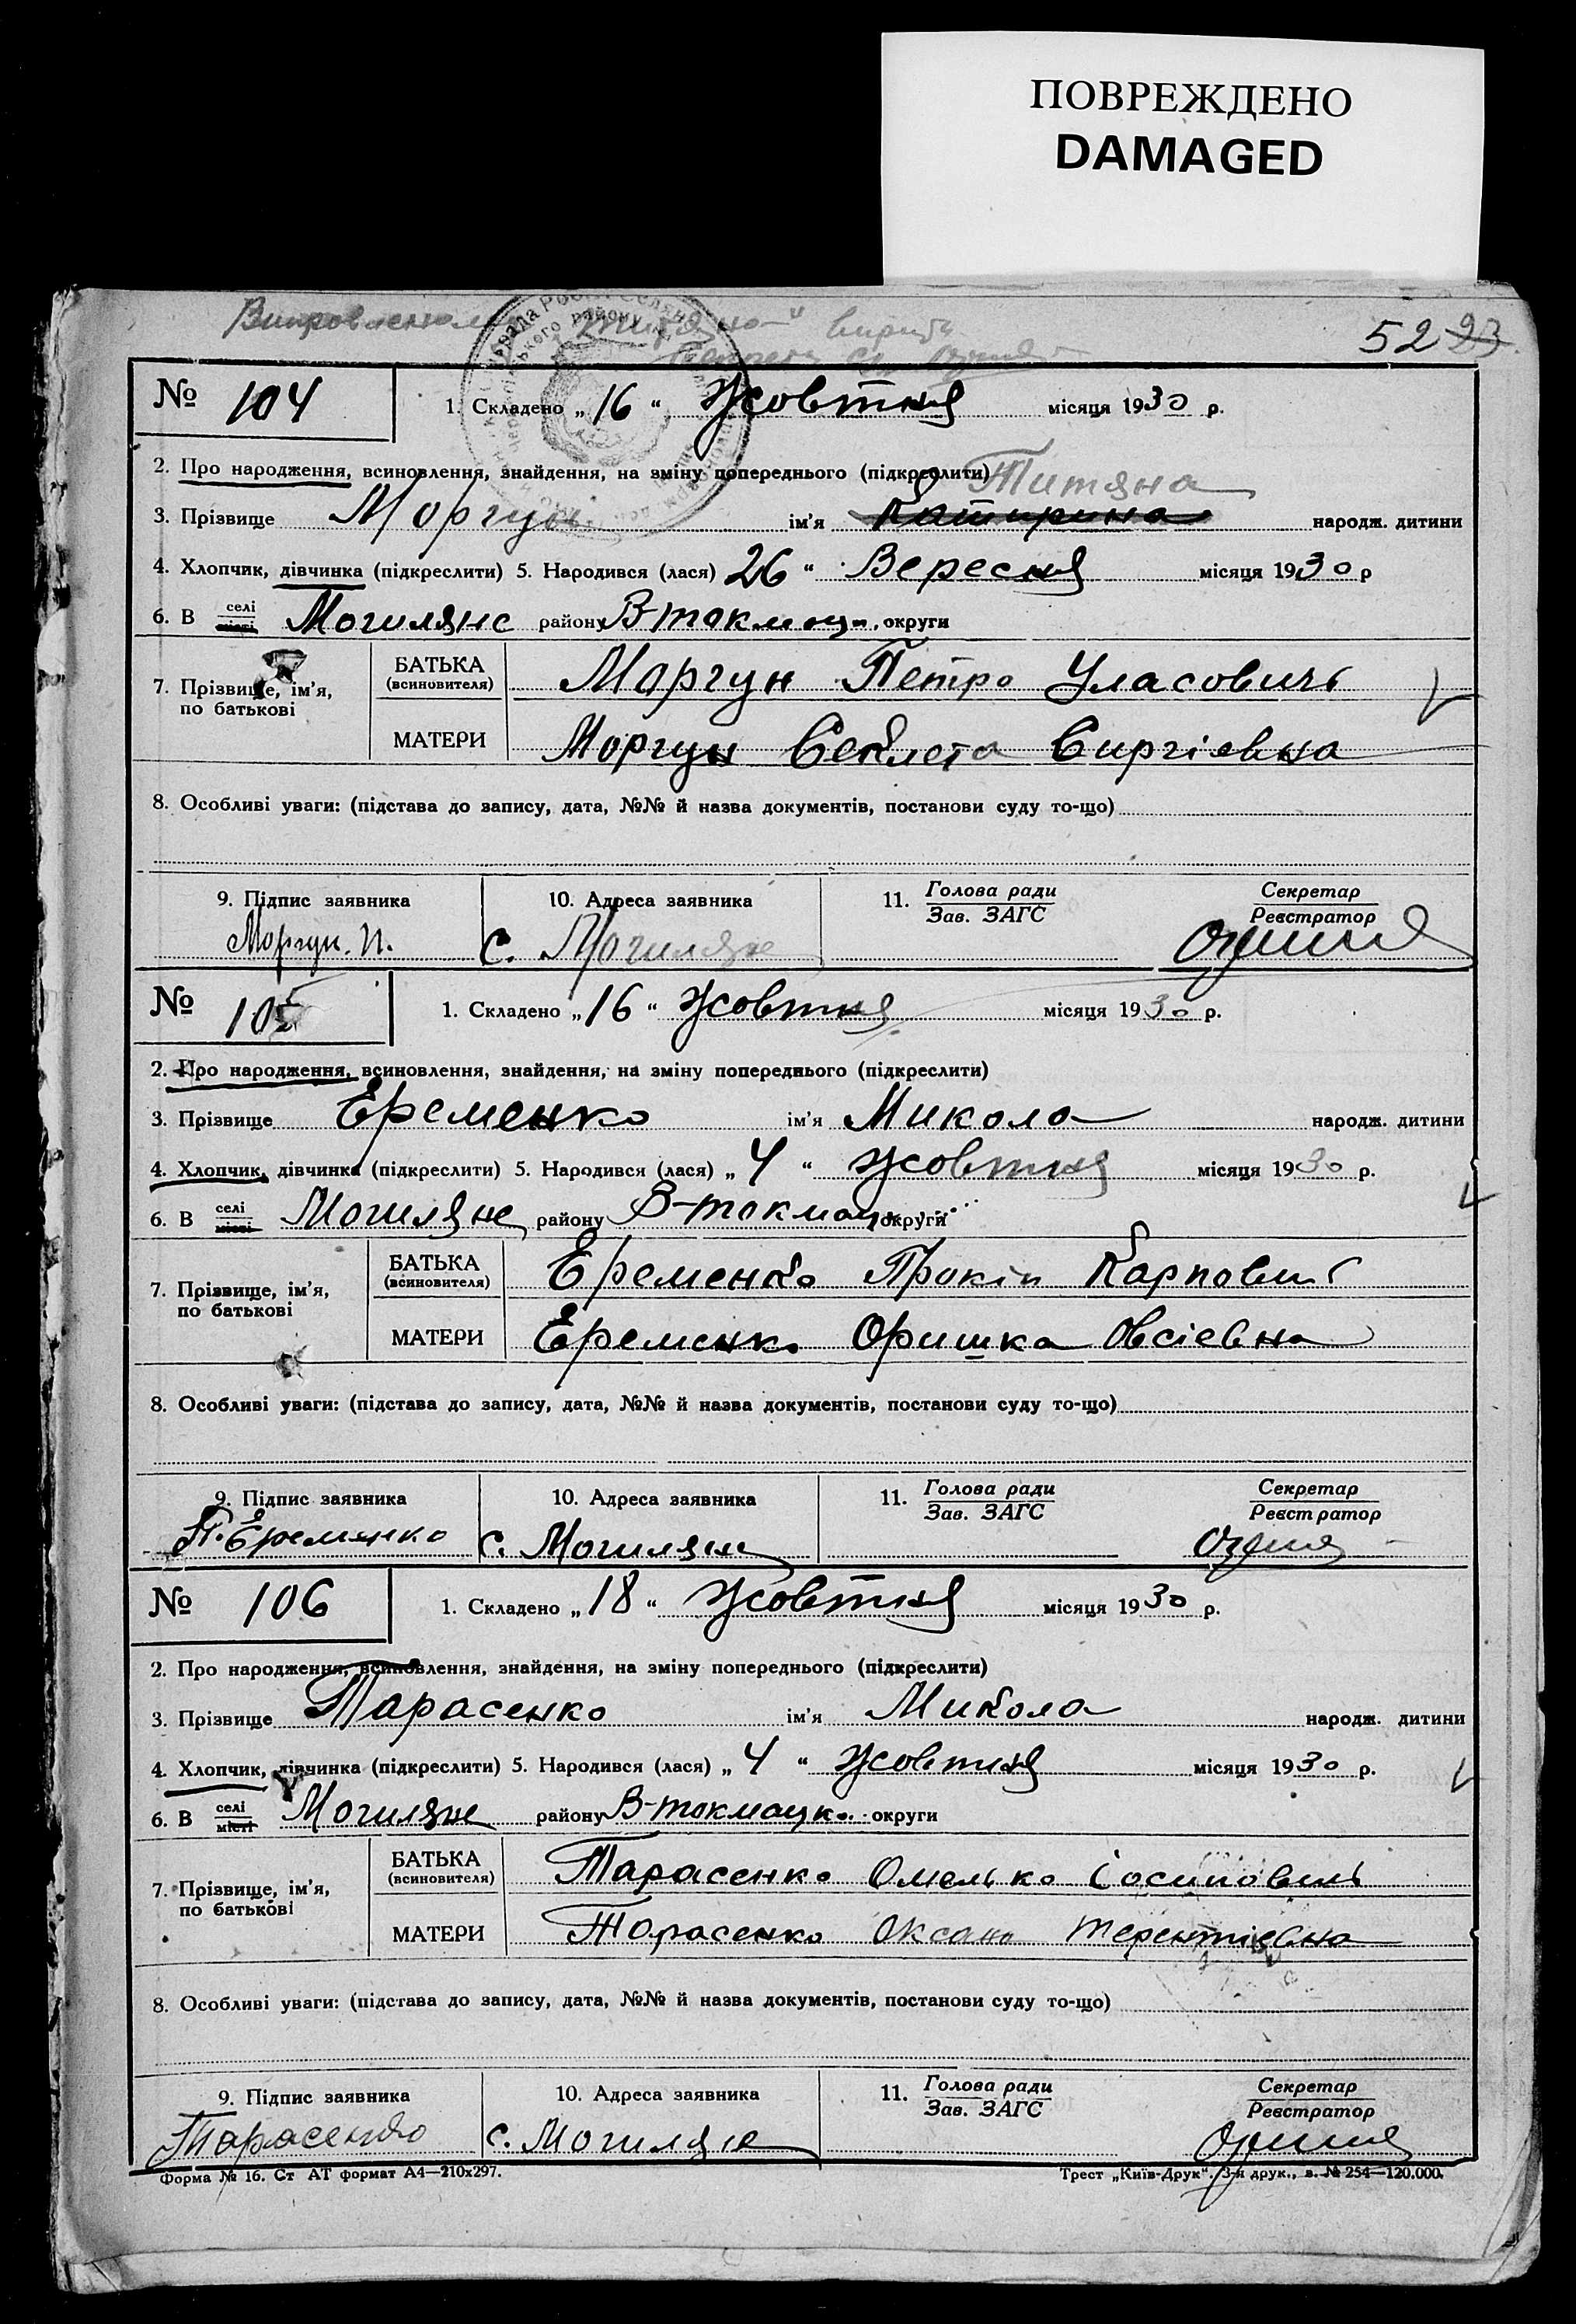 ПОВРЕЖДЕНО
DAMAGED
52 23
№ 104
1. Складено „16“ Жовтня місяця 1930 р.
2. Про народження, всиновлення, знайдення, на зміну попереднього (підкреслити)
Титяна
3. Прізвище Моргун ім'я Катирина народж. дитини
4. Хлопчик, дівчинка (підкреслити) 5. Народився (лася) 26 “ Вересня місяця 1930 р
6. В селі місті Могиляне району В-токмацк. округи
7. Прізвище, ім'я, по батькові
БАТЬКА (всиновителя) Моргун Петро Уласовичь
МАТЕРИ Моргун Сиргіевна
8. Особливі уваги: (підстава до запису, дата, №№ й назва документів, постанови суду то-що)
9. Підпис заявника 10. Адреса заявника 11. Голова ради Зав. ЗАГС Секретар Реєстратор
Моргун. П. с. Могиляне
№ 105
1. Складено „16“ Жовтня місяця 1930 р.
2. Про народження, всиновлення, знайдення, на зміну попереднього (підкреслити)
3. Прізвище Еременко ім'я Микола народж. дитини
4. Хлопчик, дівчинка (підкреслити) 5. Народився (лася) „4“ Жовтня місяця 1930 р.
6. В селі місті Могиляне району В-токмацк. округи
7. Прізвище, ім'я, по батькові
БАТЬКА (всиновителя) Еременко Прокіп Карпович
МАТЕРИ Еременко Оришка Овсіевна
8. Особливі уваги: (підстава до запису, дата, №№ й назва документів, постанови суду то-що)
9. Підпис заявника 10. Адреса заявника 11. Голова ради Зав. ЗАГС Секретар Реєстратор
П. Еременко с. Могиляне
№ 106
1. Складено „18“ Жовтня місяця 1930 р.
2. Про народження, всиновлення, знайдення, на зміну попереднього (підкреслити)
3. Прізвище Тарасенко ім'я Микола народж. дитини
4. Хлопчик, дівчинка (підкреслити) 5. Народився (лася) „4“ Жовтня місяця 1930 р.
6. В селі місті Могиляне району В-токмацк. округи
7. Прізвище, ім'я, по батькові
БАТЬКА (всиновителя) Тарасенко Омелько Іосипович
МАТЕРИ Тарасенко Оксана Терентіевна
8. Особливі уваги: (підстава до запису, дата, №№ й назва документів, постанови суду то-що)
9. Підпис заявника 10. Адреса заявника 11. Голова ради Зав. ЗАГС Секретар Реєстратор
Тарасенко с. Могиляне
Форма № 16. Ст АТ формат А4—210х297. Трест „Київ-Друк“. 3-я друк., в. № 254—120.000.